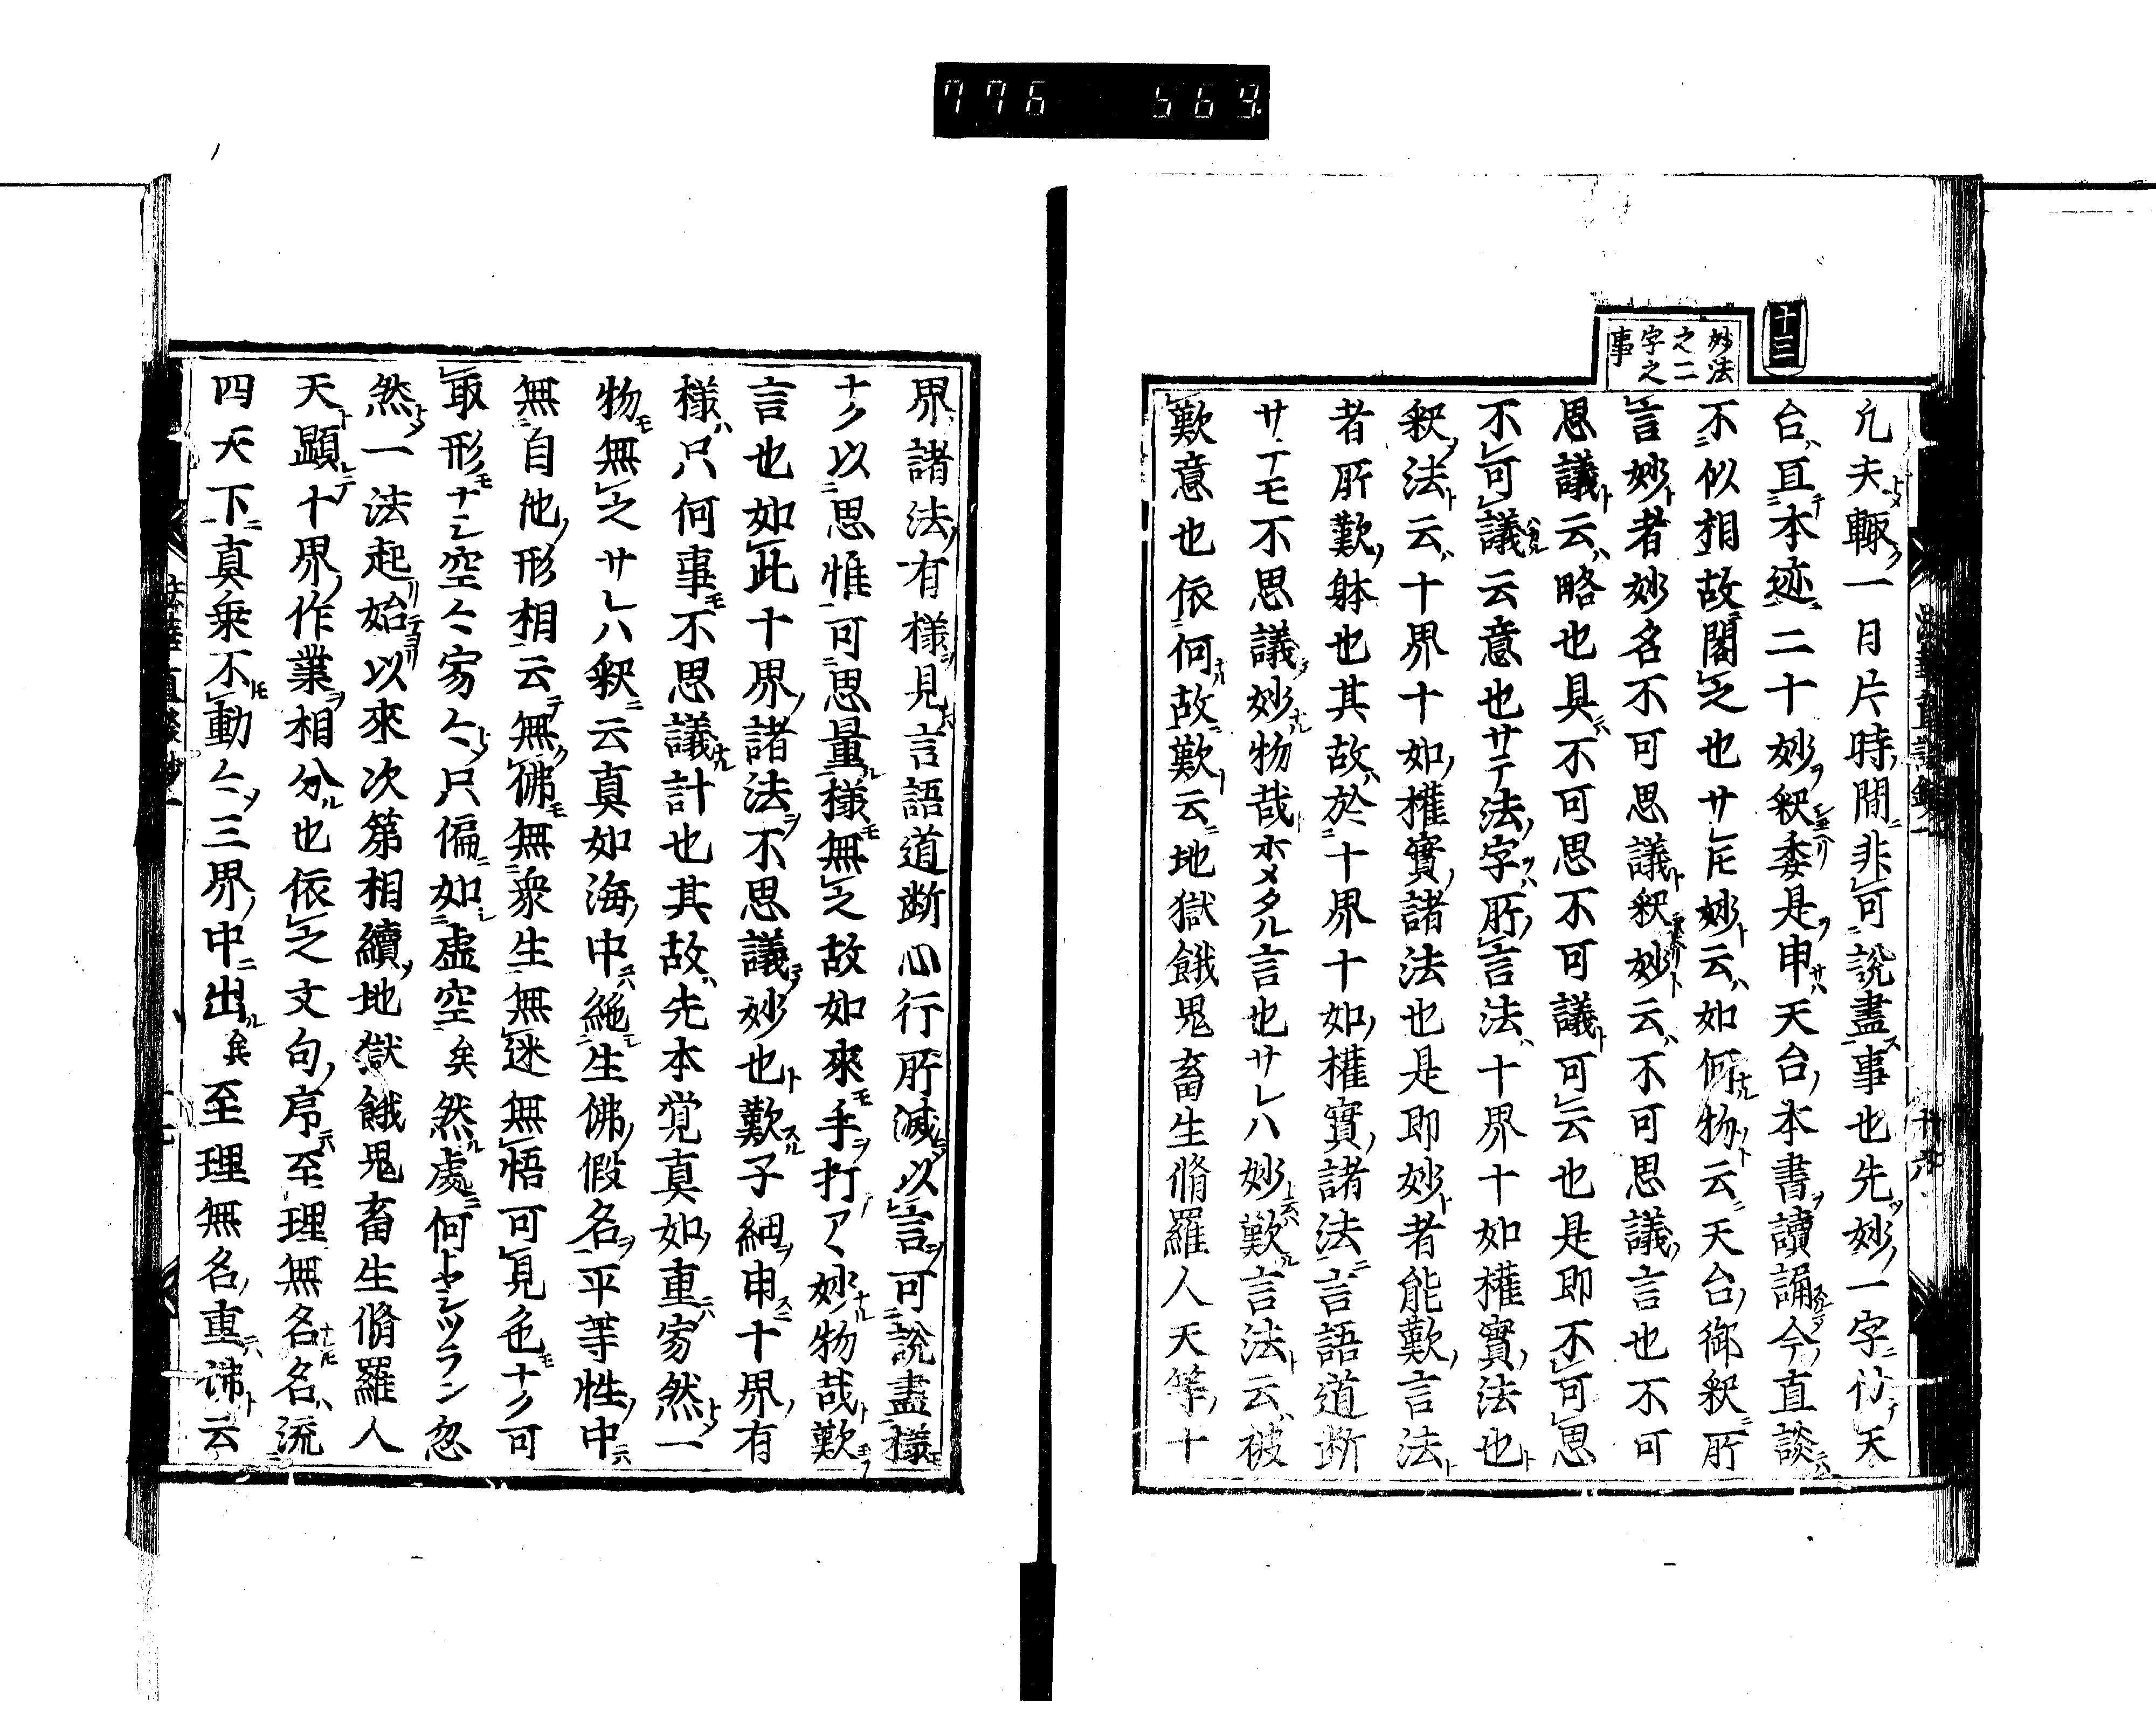 776 569
十二
妙法
之二
字之
事
凢夫輙一日片時間非可說盡事也先妙一字付天
台且本迹二十妙釈委是申天台本書讀誦今直談
不似相故閣之也サレ𪜈妙云如何物云天台御釈所
言妙者妙名不可思議釈妙云不可思議言也不可
思議云略也具不可思不可議可云也是即不可思
不可議云意也サテ法字所言法十界十如權實法也
釈法云十界十如權實諸法也是即妙者能歎言法
者所歎躰也其故於十界十如權實諸法言語道断
サテモ不思議妙物哉ホメタル言也サレハ妙歎言法云被
歎意也依何故歎云地獄餓鬼畜生脩羅人天等十
界諸法有樣見言語道断心行所滅以言可說盡樣
ナク以思惟可思量樣無之故如來手打〱妙物哉歎
言也如此十界諸法不思議妙也歎子細申十界有
樣只何事不思議計也其故先本覚真如重寂然一
物無之サレハ釈云真如海中絶生佛假名平等性中
無自他形相云無佛無衆生無迷無悟可見色ナク可
取形ナシ空〻寂〻只偏如虛空矣然處何トヤシツラン忽
然一法起始以來次第相續地獄餓鬼畜生脩羅人
天顕十界作業相分也依之文句序至理無名名流
四天下真乗不動〻三界中出矣至理無名重沸云